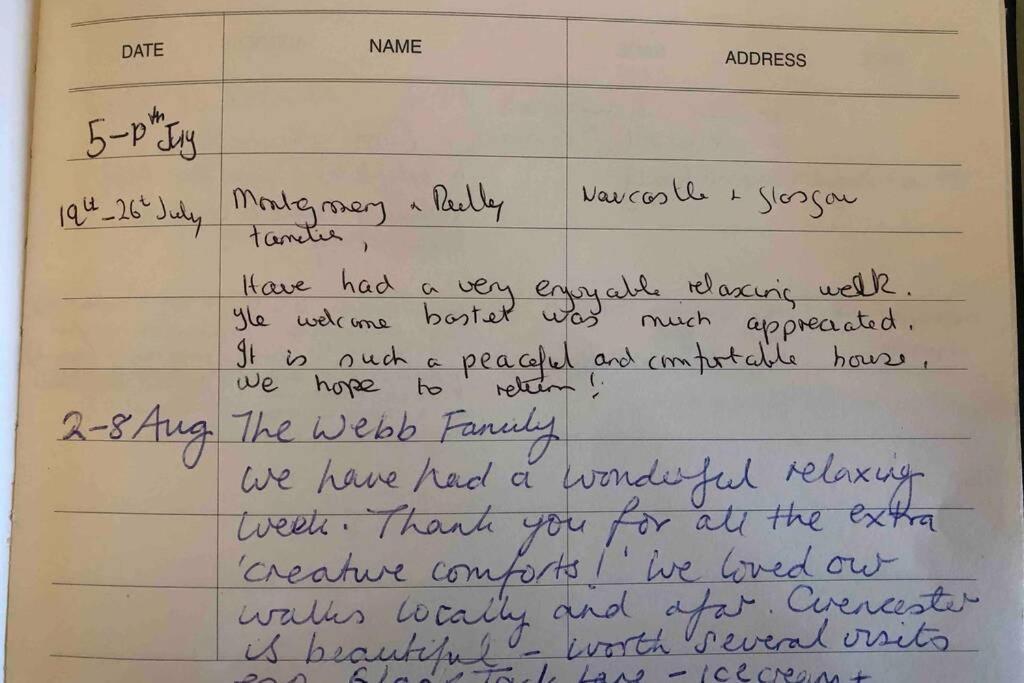 DATE NAME ADDRESS
5- July
19th-26th July Montgomery + Reilly Newcastle + Glasgow
families,
Have had a very enjoyable relaxing week.
The welcome basket was much appreciated.
It is such a peaceful and comfortable house.
We hope to return!
2-8 Aug The Webb Family
We have had a wonderful relaxing
week. Thank you for all the extra
'creature comforts!' We loved our
walks locally and afar. Cirencester
is beautiful - worth several visits
Lane - icecream +